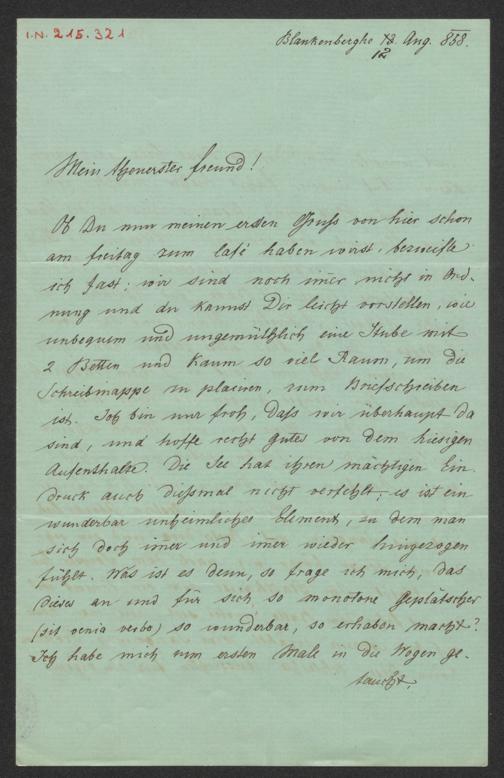 I.N. 215.321
Blankenberghe 18. Aug. 888.
12
Mein theuerster Freund!
Ob Du nur meinen ersten Gruß von hier schon
am Freitag zum Café haben wirst, bezweifle
ich fast; wir sind noch im̅er nicht in Ord-
nung und du kannst Dir leicht vorstellen, wie
unbequem und ungemüthlich eine Stube mit
2 Betten und kaum so viel Raum, um die
Schreibmappe zu placiren, zum Briefschreiben
ist. Ich bin nur froh, daß wir überhaupt da
sind, und hoffe recht gutes von dem hiesigen
Aufenthalte. Die See hat ihren mächtigen Ein-
druck auch dießmal nicht verfehlt; es ist ein
wunderbar unheimliches Element, zu dem man
sich doch im̅er und im̅er wieder hingezogen
fühlt. Was ist es denn, so frage ich mich, das
dieses an und für sich so monotone Geplätscher
(sit venia verbo) so wunderbar, so erhaben macht?
Ich habe mich zum ersten Male in die Wogen ge-
taucht,